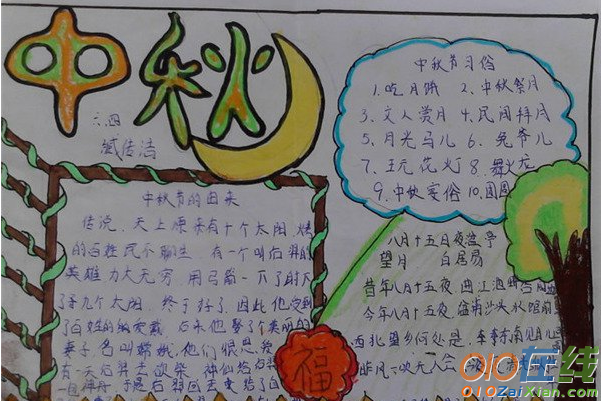 中秋
六.四
臧传洁
中秋节习俗
1.吃月饼 2.中秋祭月
3.文人赏月 4.民间拜月
5.月光马儿 6.兔爷儿
7.玩花灯 8.舞火龙
9.中秋宴俗 10.团圆
中秋节的由来
传说,天上原来有十个太阳 烤
的百姓民不聊生 有一个叫后羿的
英雄力大无穷 用弓箭一下了射
了九个太阳 终于好了,因此他受到
了百姓的爱戴 后来他娶了美丽的
妻子,名叫嫦娥,他们很恩爱
有一天后羿去 神仙给后羿
一 于是后羿回去 给了
福
八月十五日夜湓亭
望月 白居易
昔年八月十五夜 曲江池畔杏园
今年八月十五夜 湓浦沙头水馆前
西北望乡何处是,东南见月几
昨风一吹无人会
010在线
010ZaiXian.com